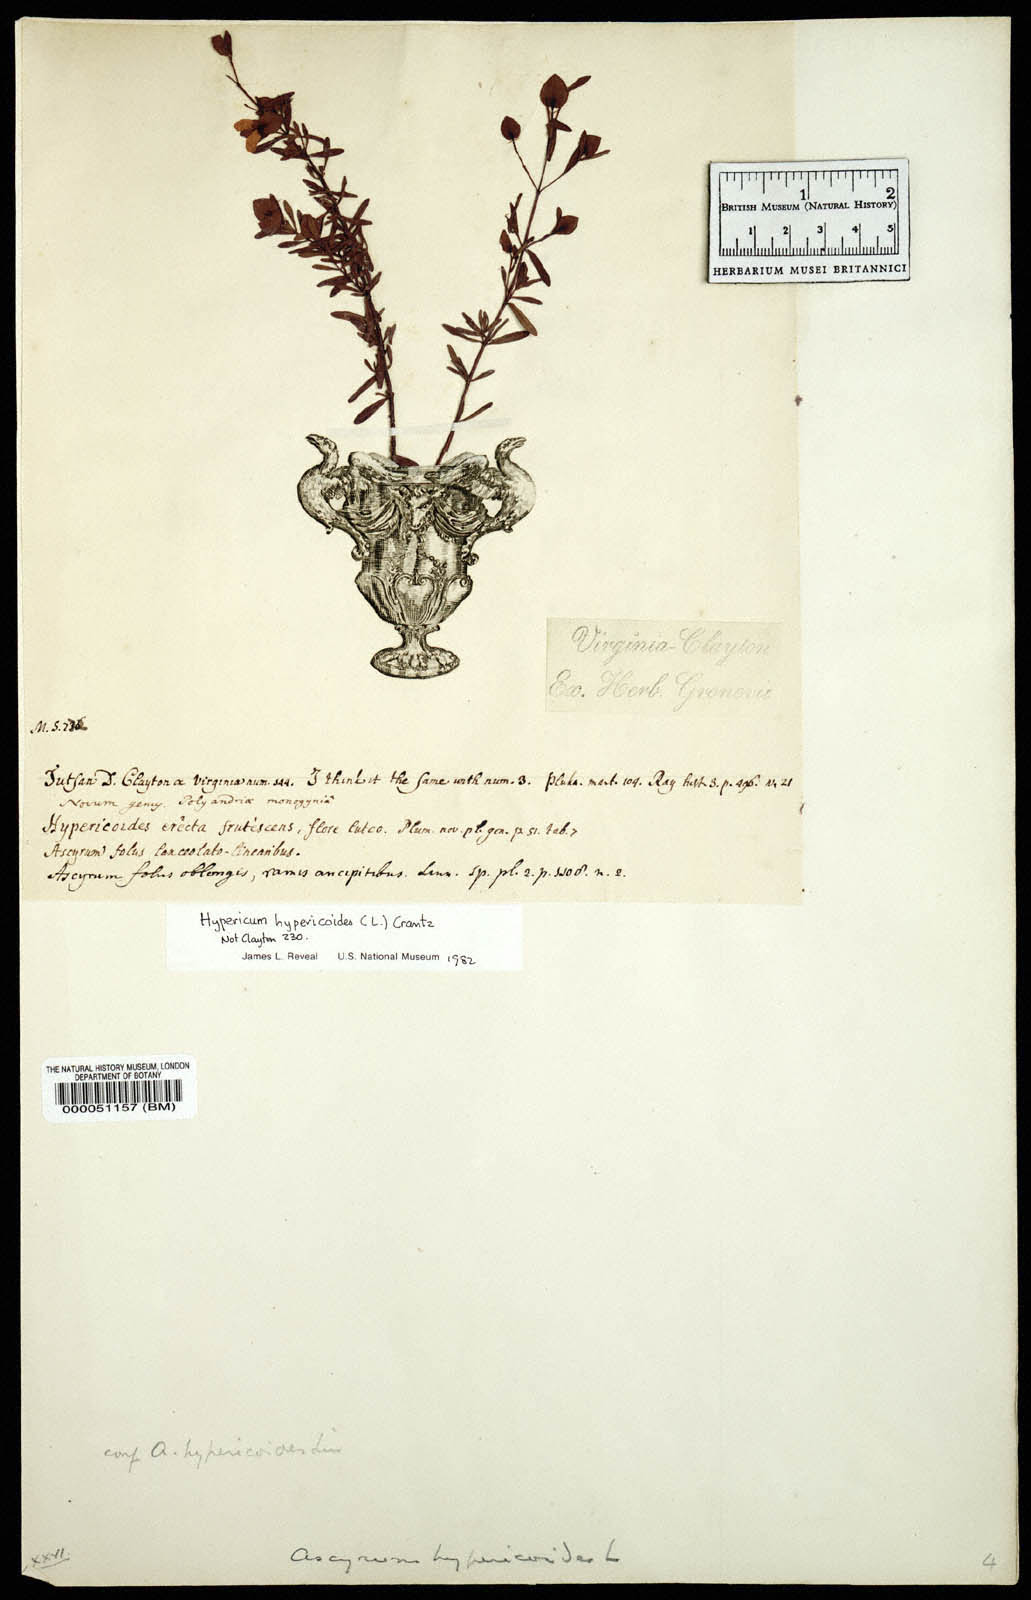 1 2
BRITISH MUSEUM (NATURAL HISTORY)
1 2 3 4 5
HERBARIUM MUSEI BRITANNICI
Virginia-Clayton
Ex. Herb. Gronovii
M. S.
Tutsan D. Clayton a Virginia num. 144. I think it the same with num. 3. Pluka. mart. 104. Ray hist. 3. p. 496. n. 21
Novum genus. Polyandriæ monogyniæ
Hypericoides erecta frutescens, flore luteo. Plum. nov. pl. gen. p. 51. tab. 7
Ascyrum foliis lanceolato-linearibus.
Ascyrum foliis oblongis, ramis ancipitibus. Linn. sp. pl. 2. p. 1108. n. 2.
Hypericum hypericoides (L.) Crantz
Not Clayton 230.
James L. Reveal U.S. National Museum 1982
THE NATURAL HISTORY MUSEUM, LONDON
DEPARTMENT OF BOTANY
000051157 (BM)
conf A. hypericoides Lin
XXVI.
Ascyrum hypericoides L
4